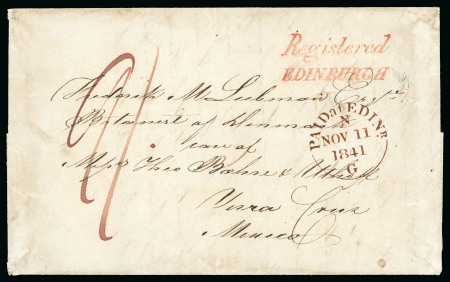 Registered
EDINBURGH
Frederik M Liebman Esqre
Botanist of Denmark
care of
Mess Theo Bahre &
Verra Cruz
Mexico
PAID at EDINR
N
NOV 11
1841
G